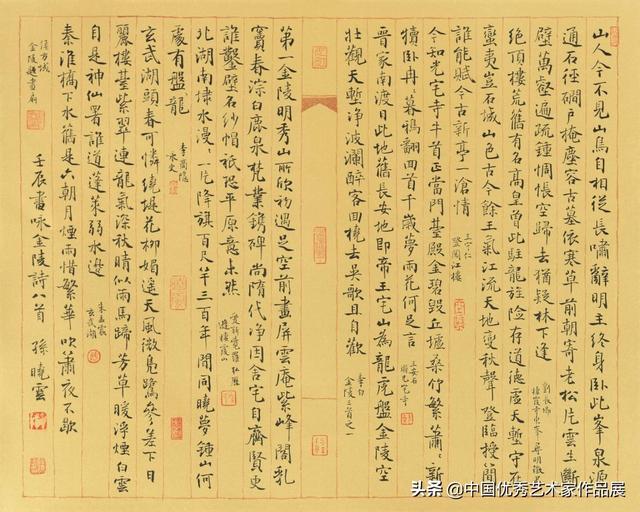 山人今不見山鳥自相從長嘯辭明主終身卧此峯泉源
通石徑磵戶掩塵容古墓依寒草前朝寄老松片雲生斷
壁萬壑遍疏鍾惆悵空歸去猶疑林下逢 劉長卿
絕頂樓荒舊有名高皇曾此駐龍旌險存道德虛天塹守在
蠻夷豈石城山色古今餘王氣江流天地變秋聲登臨授簡
誰能賦今古新亭一滄情 王守仁
登閱江樓
今知光宅寺牛首正當門臺殿金碧毀丘墟桑竹繁蕭蕭新
犢卧冉冉暮鴉翻回首千歲夢雨花何足言 王安石
光宅寺
晉家南渡日此地舊長安地即帝王宅山為龍虎盤金陵空
壯觀天塹淨波瀾醉客回橈去吳歌且自歡 李白
金陵三首之一
第一金陵明秀山所欣初遇足空前畫屏雲庵紫峰閣乳
竇春淙白鹿泉梵業鐫碑尚隋代淨因舍宅自齊賢更
誰鑿壁石紗帽祗恐平原意未然 愛新覺羅弘曆
遊棲霞山
北湖南埭水漫漫一片降旗百尺竿三百年間同曉夢鍾山何
處有盤龍 李商隱
詠史
玄武湖頭春可憐繞堤花柳媚遙天風微鳧鷺參差下日
麗樓基紫翠連龍氣深秋晴似雨馬蹄芳草暖浮煙白雲
自是神仙署誰道蓬萊弱水邊 朱孟震
玄武湖
秦淮橋下水舊是六朝月煙雨惜繁華吹簫夜不歇
侯方域
金陵題畫扇
壬辰書詠金陵詩八首 孫曉雲
头条 @中国优秀艺术家作品展